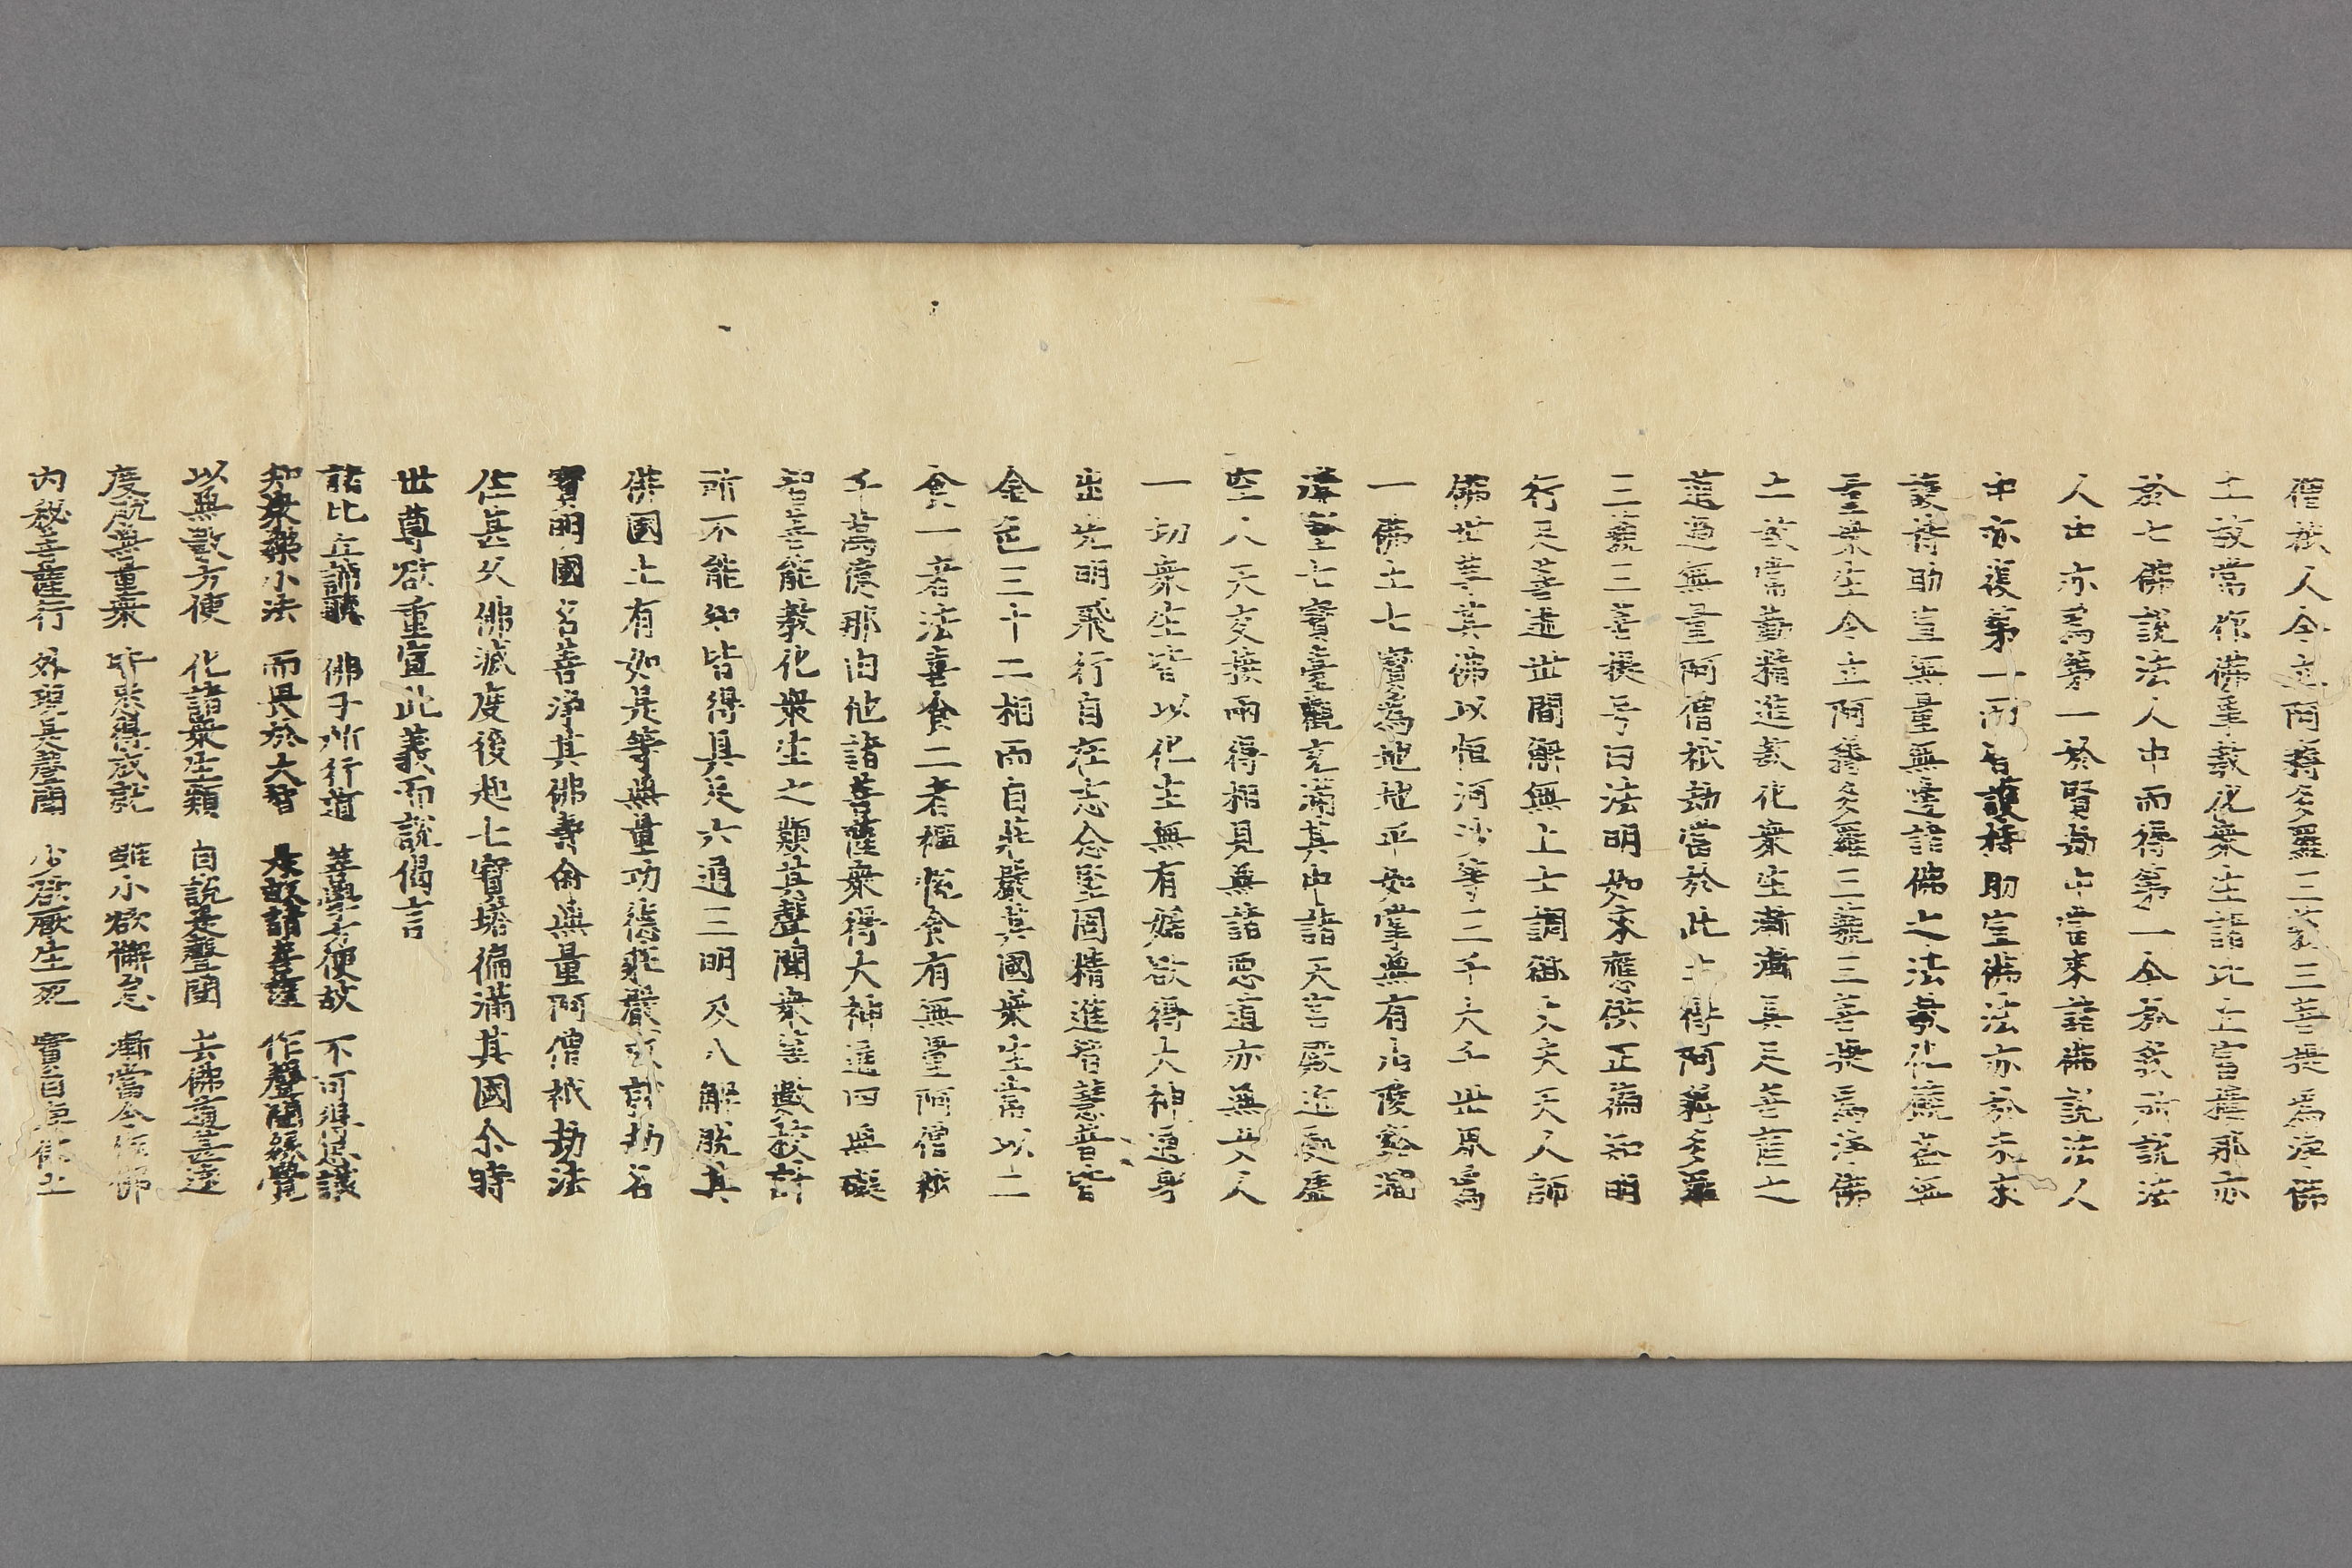 僧祇人令立阿耨多羅三藐三菩提爲淨佛
土故常作佛事教化衆生諸比丘富樓那亦
於七佛說法人中而得第一今於我所說法
人中亦爲第一於賢劫中當來諸佛說法人
中亦復第一而皆護持助宣佛法亦於未來
護持助宣無量無邊諸佛之法教化饒益無
量衆生令立阿耨多羅三藐三菩提爲淨佛
土故常勤精進教化衆生漸漸具足菩薩之
道過無量阿僧祇劫當於此土得阿耨多羅
三藐三菩提号曰法明如來應供正徧知明
行足善逝世間解無上士調御丈夫天人師
佛世尊其佛以恒河沙等三千大千世界爲
一佛土七寶爲地地平如掌無有山陵谿澗
溝壑七寶臺觀充滿其中諸天宮殿近處虛
空人天交接兩得相見無諸惡道亦無女人
一切衆生皆以化生無有婬欲得大神通身
出光明飛行自在志念堅固精進智慧普皆
金色三十二相而自莊嚴其國衆生常以二
食一者法喜食二者禪悅食有無量阿僧祇
千萬億那由他諸菩薩衆得大神通四無礙
智善能教化衆生之類其聲聞衆筭數校計
所不能知皆得具足六通三明及八解脫其
佛國土有如是等無量功德莊嚴成就劫名
寶明國名善淨其佛壽命無量阿僧祇劫法
住甚久佛滅度後起七寶塔徧滿其國尒時
世尊欲重宣此義而說偈言
諸比丘諦聽 佛子所行道 善學方便故 不可得思議
知衆樂小法 而畏於大智 是故諸菩薩 作聲聞緣覺
以無數方便 化諸衆生類 自說是聲聞 去佛道甚遠
度脫無量衆 皆悉得成就 雖小欲懈怠 漸當令作佛
內祕菩薩行 外現是聲聞 少欲厭生死 實自淨佛土